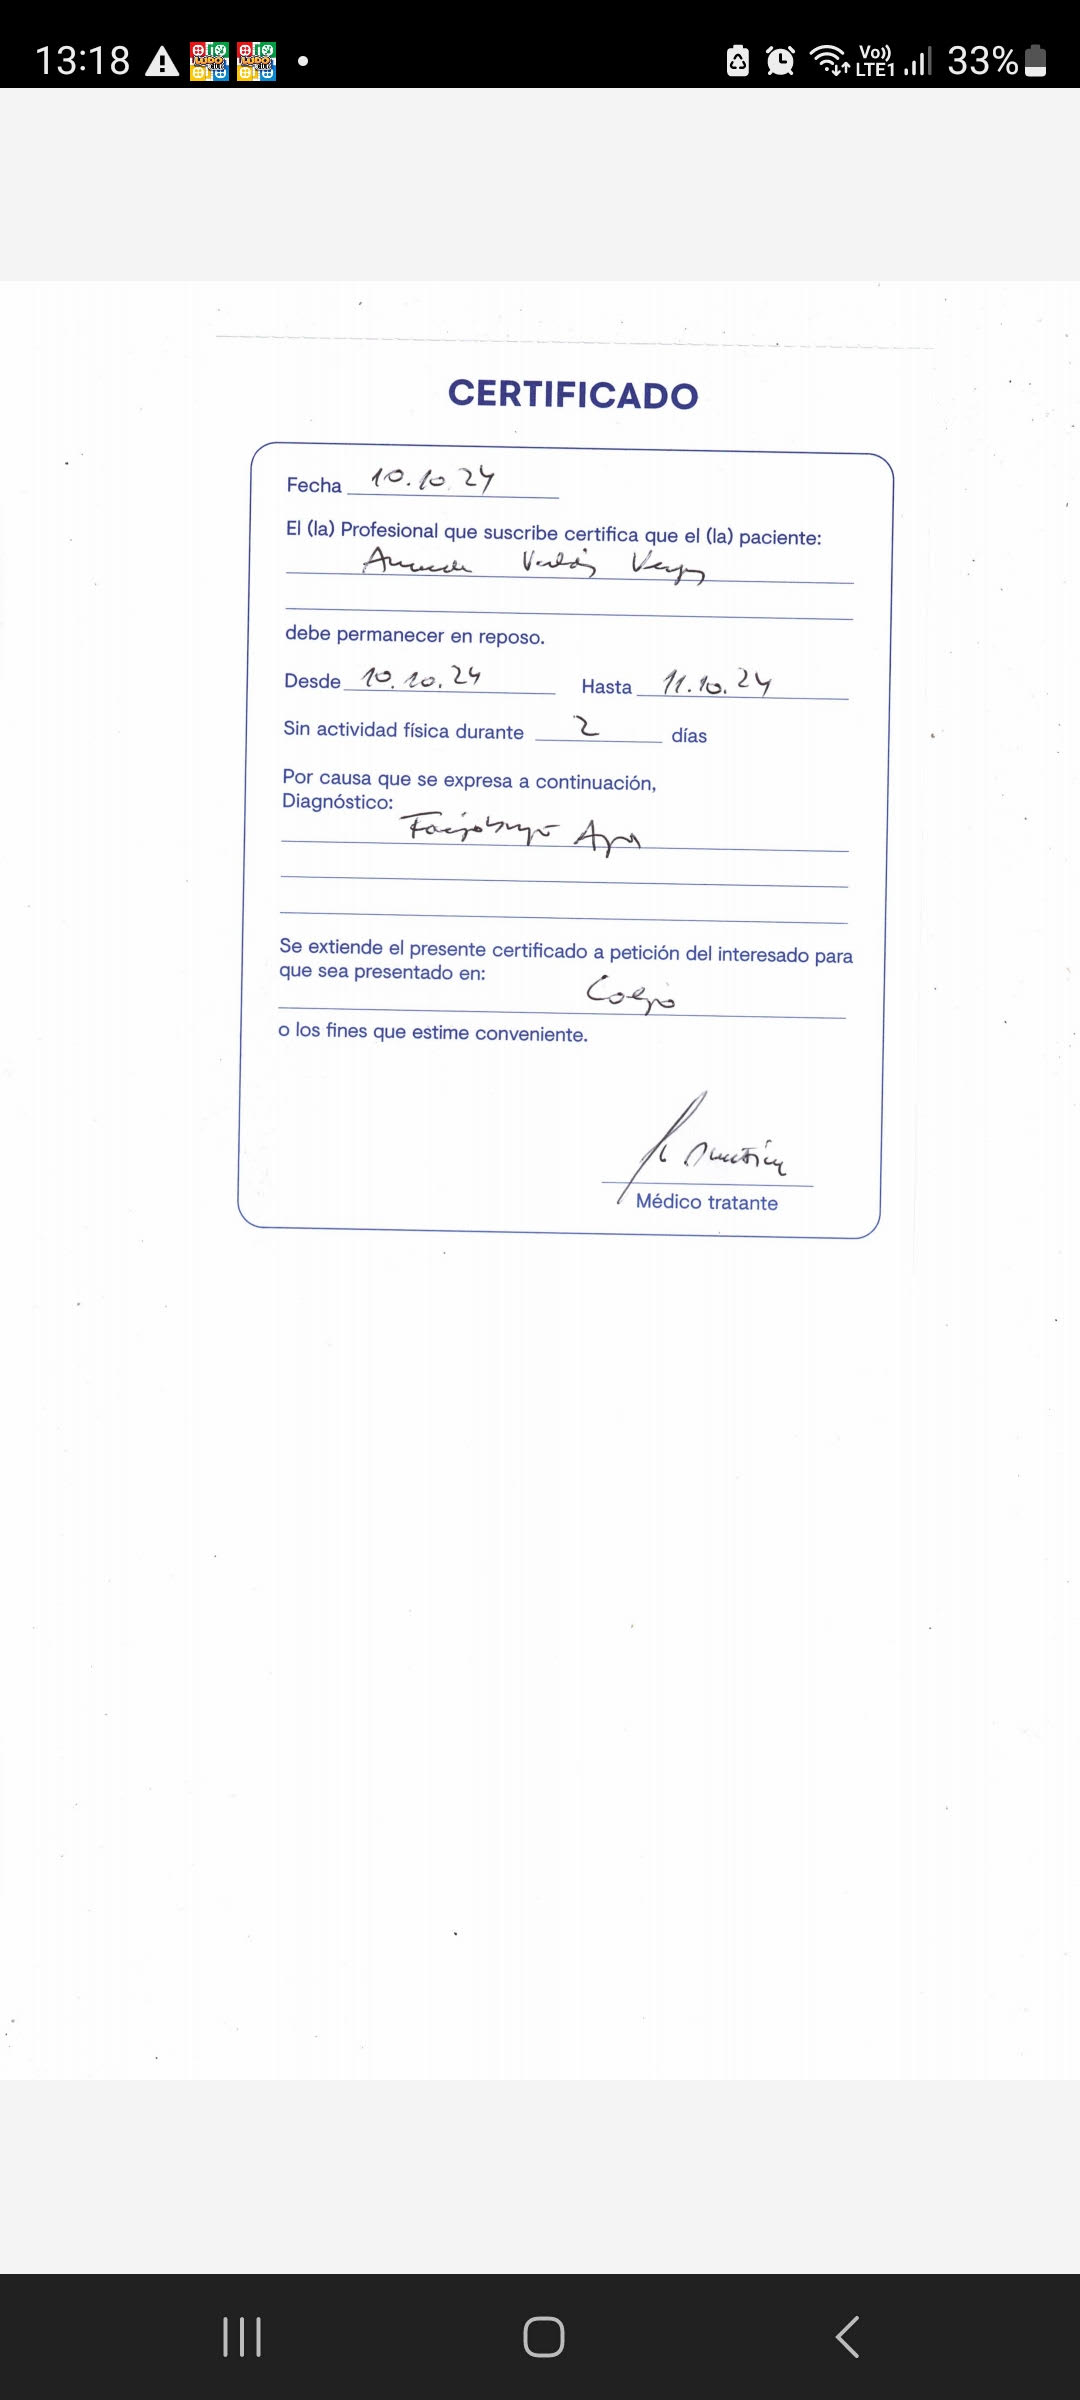 13:18 Vo)) LTE1 33%
CERTIFICADO
Fecha 10.10.24
El (la) Profesional que suscribe certifica que el (la) paciente:
debe permanecer en reposo.
Desde 10.10.24 Hasta 11.10.24
Sin actividad física durante 2 días
Por causa que se expresa a continuación,
Diagnóstico:
Se extiende el presente certificado a petición del interesado para
que sea presentado en:
Colegio
o los fines que estime conveniente.
Médico tratante